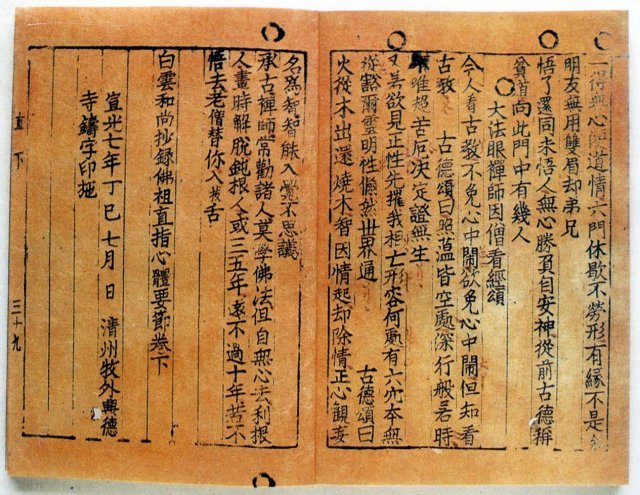 一得無心便道情六門休歇不勞形有緣不是
朋友無用雙眉却弟兄
悟了還同未悟人無心勝負自安神從前古德稱
貧道向此門中有幾人
大法眼禪師因僧看經頌
今人看古教不免心中鬧欲免心中鬧但知看
古教 古德頌曰照蘊皆空處深行般若時
唯超苦厄決定證無生
又若欲見正性先摧我相亡形容何處有六宂本無
從豁爾靈明性翛然世界通 古德頌曰
火從木出還燒木智因情起却除情正心觀妄
名爲智智能入覺不思議
承古禪師常勸諸人莫學佛法但自無心去利根
人晝時解脫鈍根人或三五年遠不過十年若不
悟去老僧替你入拔舌
白雲和尚抄錄佛祖直指心體要節卷下
宣光七年丁巳七月 日 清州牧外興德
寺鑄字印施
直下 三十九